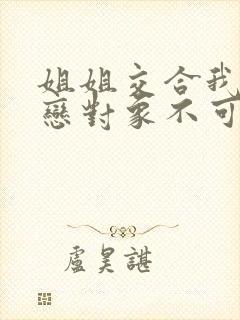 姐姐交合我
戀對象不可
盧昊諶